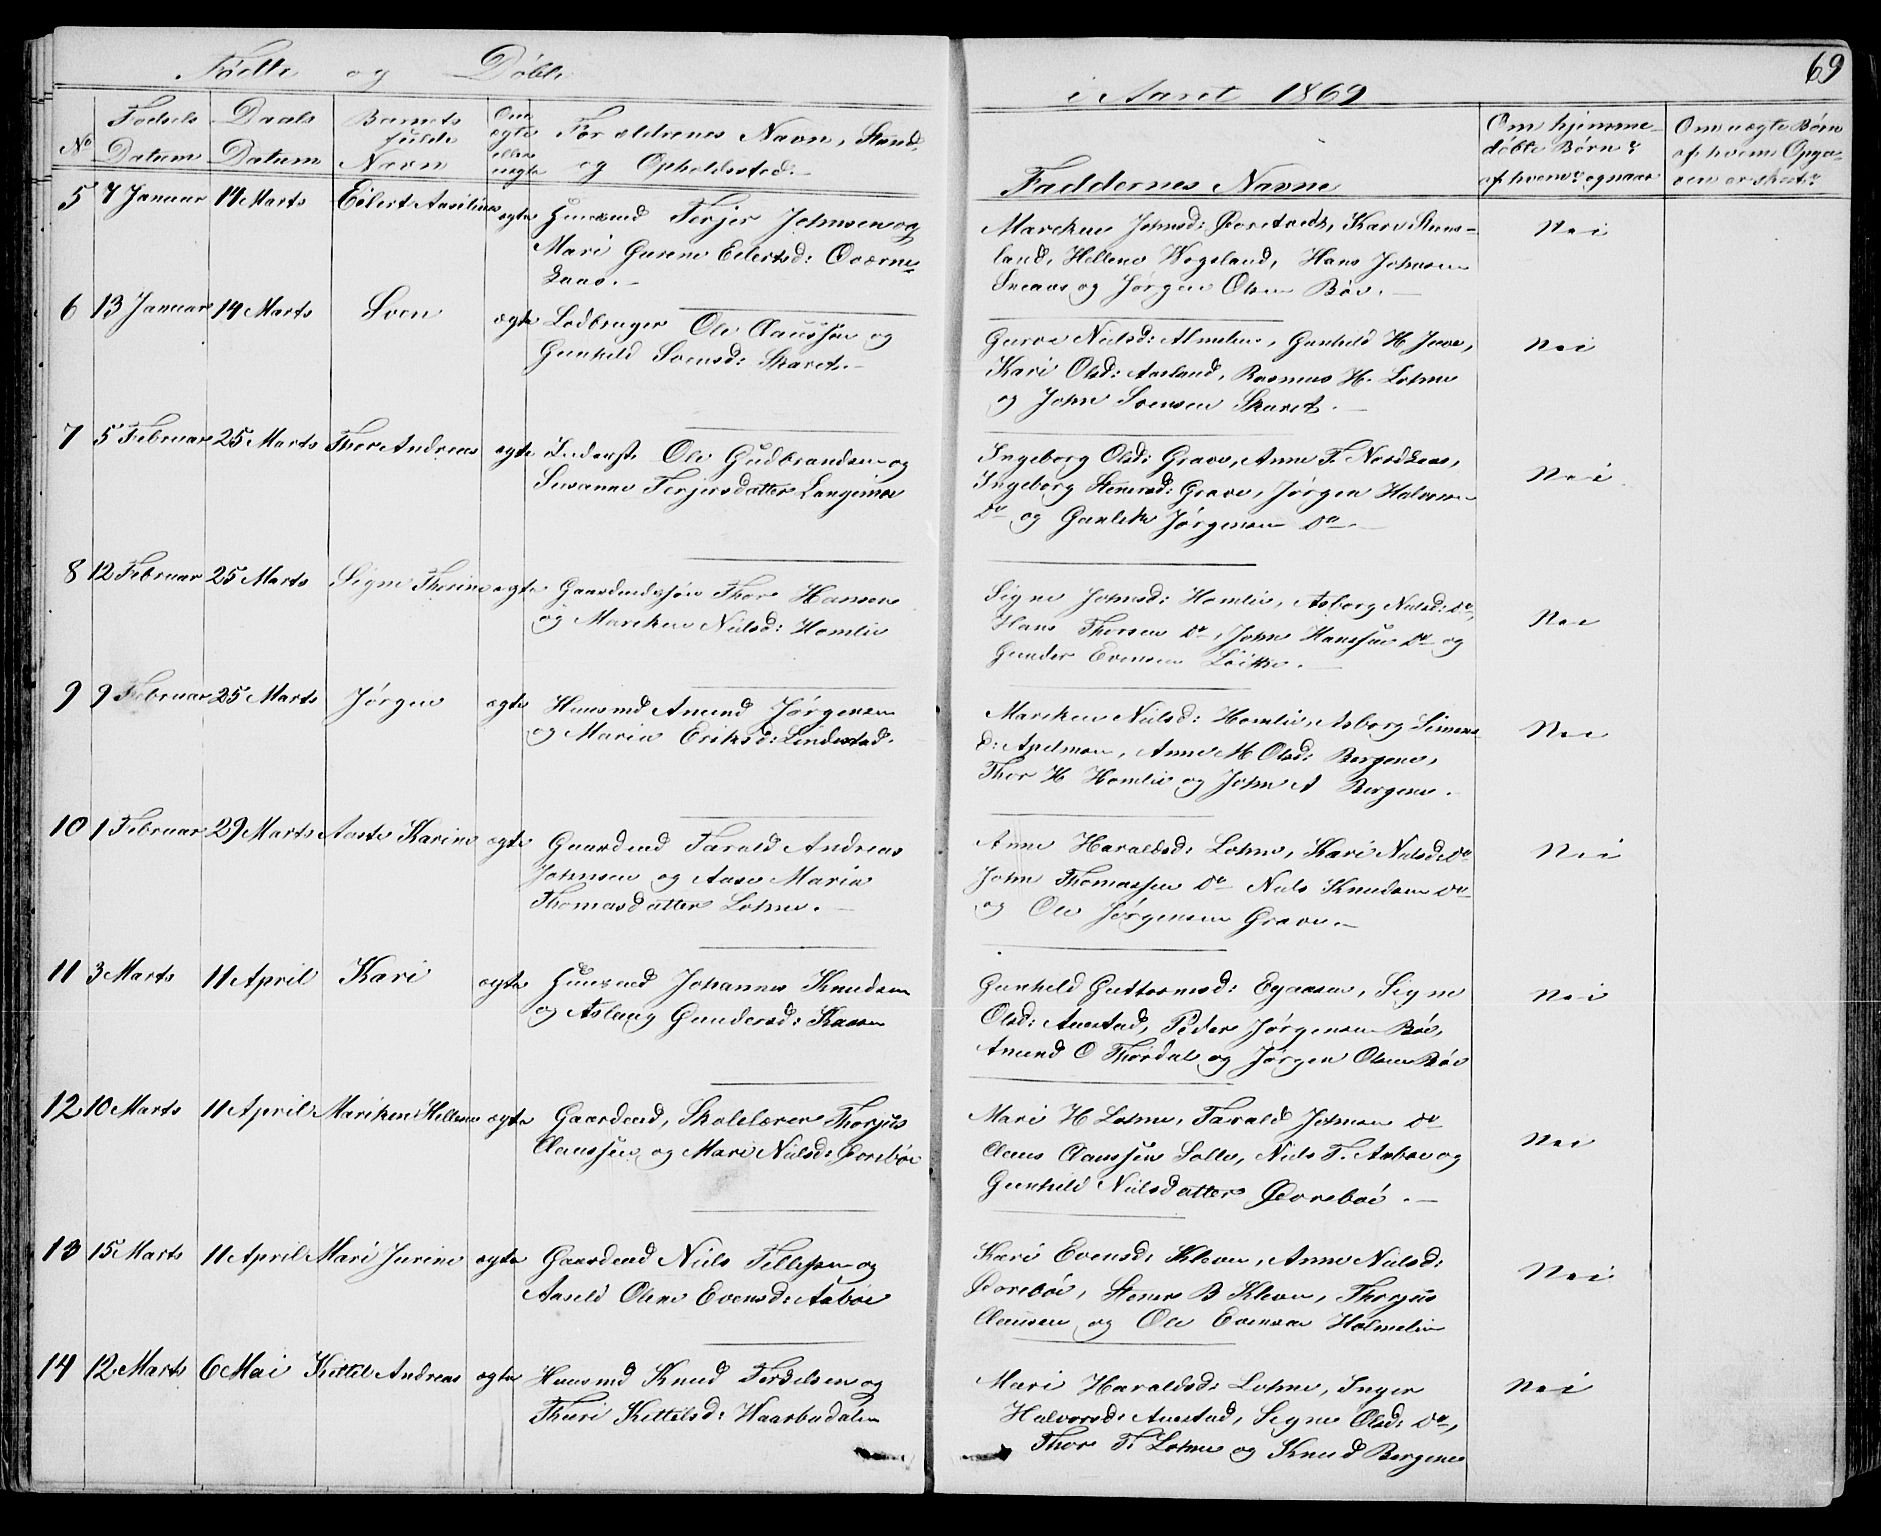 Födte og Döbte
i Aaret 1869
69
No
Fødsels Datum
Daabs Datum
Barnets fulde Navn
Om ægte eller uægte
Forældrenes Navn, Stand og Opholdssted.
Faddernes Navne
Om hjemmedøbte Børn? af hvem? og naar
Om uægte Børn af hvem Opgaven er skeet?
5 7 Januar 14 Marts Eilert Aasilius ægte Huusmd Terjer Johnsen og
Mari Gurene Eilertsd: Oværne-
laas.
Mareken Johnsd: Øvretveds, Kare
land, Hellene Wegeland, Hans Johnsen
og Jørgen Olsen Böe.
Nei
6 13 Januar 14 Marts Sven ægte Lodbruger Ole Claussen og
Gunhild Svensd: Skaret.
Gurve Nielsd: Almelien, Gunhild H
Kari Olsd: Aasland, Rasmus H. Lohne
og John Svensen Skaret.
Nei
7 5 Februar 25 Marts Thor Andreas ægte Inderst Ole Gudbrandsen og
Susanne Terjersdatter Langemoe
Ingeborg Olsd: Grave, Anne T. Nordlaas,
Ingeborg Stenersd: Grave, Jørgen Halvorsen
Do og Gunlek Jørgensen Do.
Nei
8 12 Februar 25 Marts Signe Thorine ægte Gaardmdssøn Thor Hansen
og Mareken Nielsd: Homlie
Signe Johnsd: Homlie, Asborg Nielsd: Do,
Hans Thorsen Do, John Hanssen Do og
Gunder Evensen Løitte.
Nei
9 9 Februar 25 Marts Jørgen ægte Huusmd Amund Jørgensen
og Maria Eriksd: Lindestad.
Mareken Nielsd: Homlie, Asborg Simens-
d: Apelmoen, Anne M Olsd: Bergene,
Thor H Homlie og John A Bergene.
Nei
10 1 Februar 29 Marts Aaste Karine ægte Gaardmd Tarald Andreas
Johnsen og Aase Maria
Thomasdatter Lohne.
Anne Haraldsd: Lohne, Kari Nielsd: Do
John Thomassen Do Niels Knudsen Do
og Ole Jørgensen Grave.
Nei
11 3 Marts 11 April Kari ægte Huusmd Johannes Knudsen
og Aslaug Gundersd: Kaasen
Gunhild Guttormsd: Egaasen, Signe
Olsd: Auestad, Peder Jørgensen Böe,
Amund O Thordal og Jørgen Olsen Böe
Nei
12 10 Marts 11 April Mariken Hellene ægte Gaardmd, Skolelærer Thorjus
Claussen og Mari Nielsd: Øvrebøe
Mari H Lohne, Tarald Johnsen Do
Claus Claussen Solli, Niels T. Aabøe og
Gunhild Nielsdatter Øvrebøe.
Nei
13 15 Marts 11 April Mari Jurine ægte Gaardmd Niels Tellefsen og
Aasild Olene Evensd: Aabøe
Kari Evensd: Kleven, Anne Nielsd:
Øvrebøe, Stener B Kleven, Thorjus
Clausen og Ole Evensen Holmelien
Nei
14 12 Marts 6 Mai Kittel Andreas ægte Huusmd Knud Terdelsen og
Thuri Kittelsd: Haabudalen
Mari Haraldsd: Lohne, Inger
Halvorsd: Auestad, Signe Olsd: Do,
Thor T. Lohne og Knud Bergene
Nei